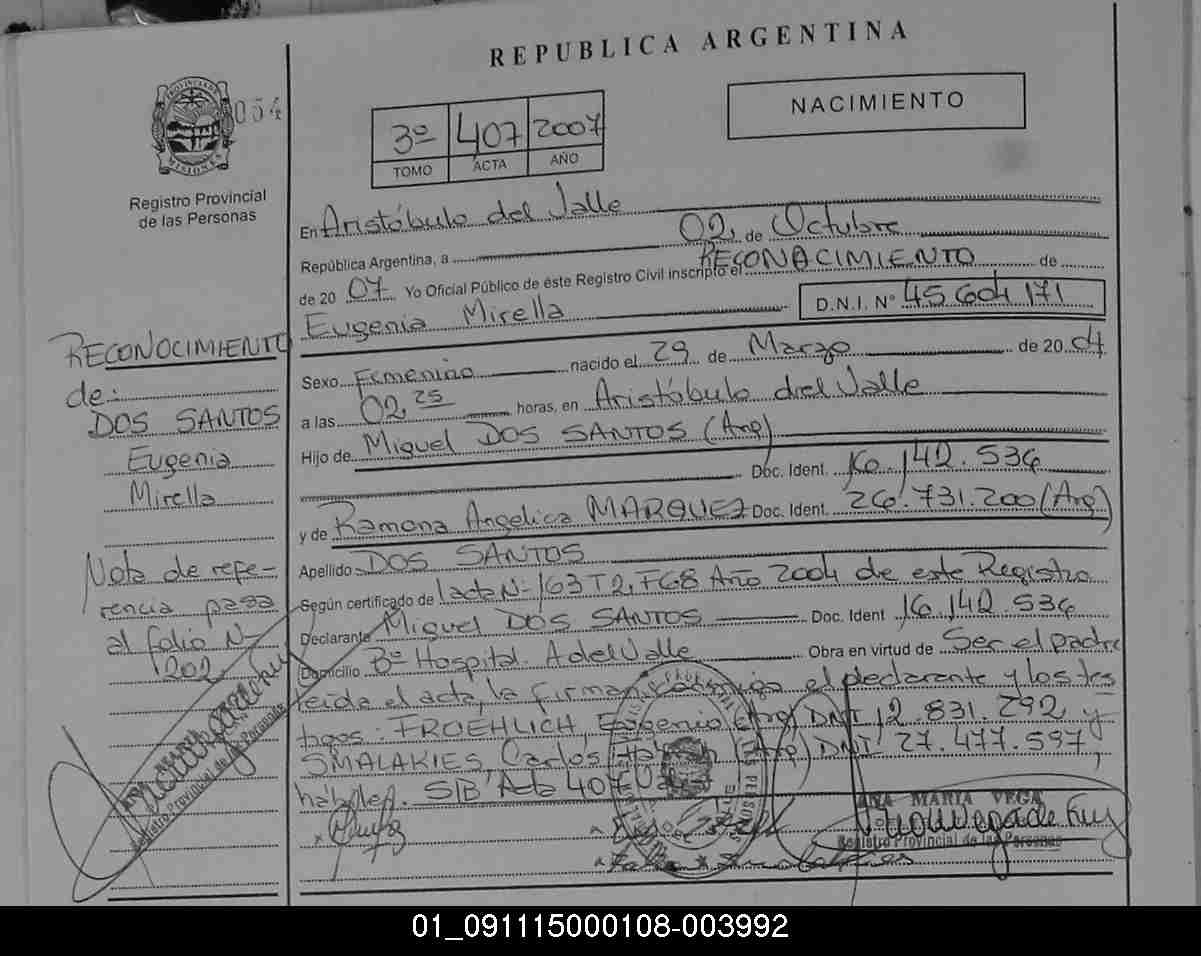 REPUBLICA ARGENTINA
PROVINCIA DE MISIONES
054
Registro Provincial
de las Personas
NACIMIENTO
3º 407 2007
TOMO ACTA AÑO
En Aristóbulo del Valle
República Argentina, a 02 de Octubre
de 20 07 Yo Oficial Público de éste Registro Civil inscripto el RECONACIMIENTO de
Eugenia Mirella D.N.I. Nº 45 604 171
Sexo Femenino nacido el 29 de Marzo de 20 04
a las 02 25 horas, en Aristóbulo del Valle
Hijo de Miguel DOS SANTOS (Arg)
Doc. Ident. 16.142.536
y de Ramona Angelica MARQUEZ Doc. Ident. 26.731.200 (Arg)
Apellido DOS SANTOS
Según certificado de lacta N- 163 T2, F68 Año 2004 de este Registro
Declarante Miguel DOS SANTOS Doc. Ident 16.142.536
Domicilio Bº Hospital. A del Valle Obra en virtud de Ser el padre
leida el acta, la firman conmigo el declarante y los tes
tigos: FROEHLICH, Eugenio (Arg) DNI 12.831.292 y
SMALAKIES, Carlos (Arg) DNI 27.477.597,
hábiles. S/B Acta 407
ANA MARIA VEGA
Registro Provincial de las Personas
RECONOCIMIENTO
de:
DOS SANTOS
Eugenia
Mirella
Nota de refe-
rencia pasa
al folio N-
202
Registro Provincial de las Personas
01_091115000108-003992